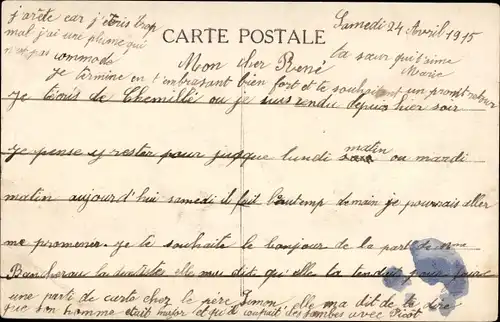 Samedi 24 Avril 1915
CARTE POSTALE
Mon cher René
Je t'écris de Chemillé ou je suis rendu depuis hier soir
Je pense y rester pour jusque lundi matin ou mardi
matin aujourd'hui samedi il fait beautemp demain je pourrais aller
me promener. je te souhaite le bonjour de la part de Mme
elle mas dit qu'elle la tendait pour faire
une partie de carte chez le père Simon, elle ma dit de te dire
que son homme etait major et qu'il coupait des jambes avec Picot
je termine en t'embrasant bien fort et te souhaitent un promt retour
ta sœur qui t'aime
Marie
j'arète car j'écris trop
mal j'ai une plume qui
n'est pas commode